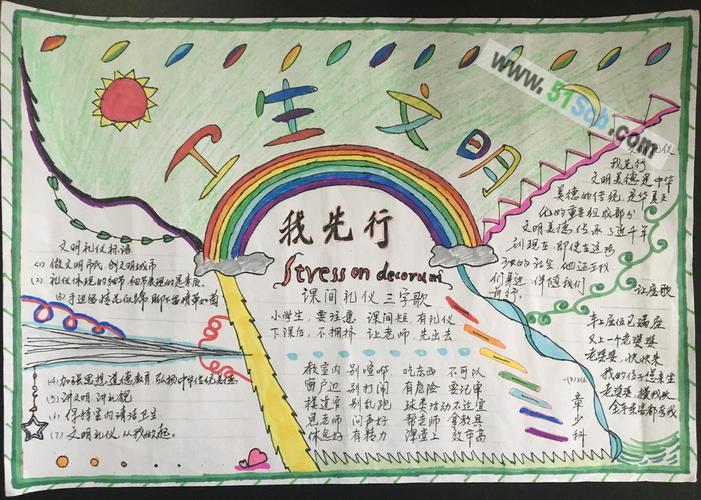 卫生文明
www.51Sob.com
我先行
Stress on decorum
课间礼仪三字歌
小学生 要注意 课间短 有礼仪
下课后 不拥挤 让老师 先出去
教室内 别喧哗 吃东西 不可以
窗户边 别打闹 有危险 要记牢
楼道窄 别乱跑 球类活动不适宜
见老师 问声好 帮老师 拿教具
休息好 有精力 课堂上 效率高
文明礼仪标语
(1) 做文明市民 创文明城市
(2) 礼仪体现的细节 细节展现的是素质
(4) 加强思想道德教育 弘扬中华传统美德
(5) 讲文明 讲礼貌
(6) 保持室内清洁卫生
(7) 文明礼仪,从我做起。
文明礼仪
我先行
文明美德是中华
美德的传统,是华夏文
化的重要组成部分
文明美德传承了近千年
到现在,即使在这
的社会,他还在我
们身边 伴随我们
前行。
让座歌
车上座位已满座
又上一个老婆婆
老婆婆,快快来
我的位子您来坐
章少科